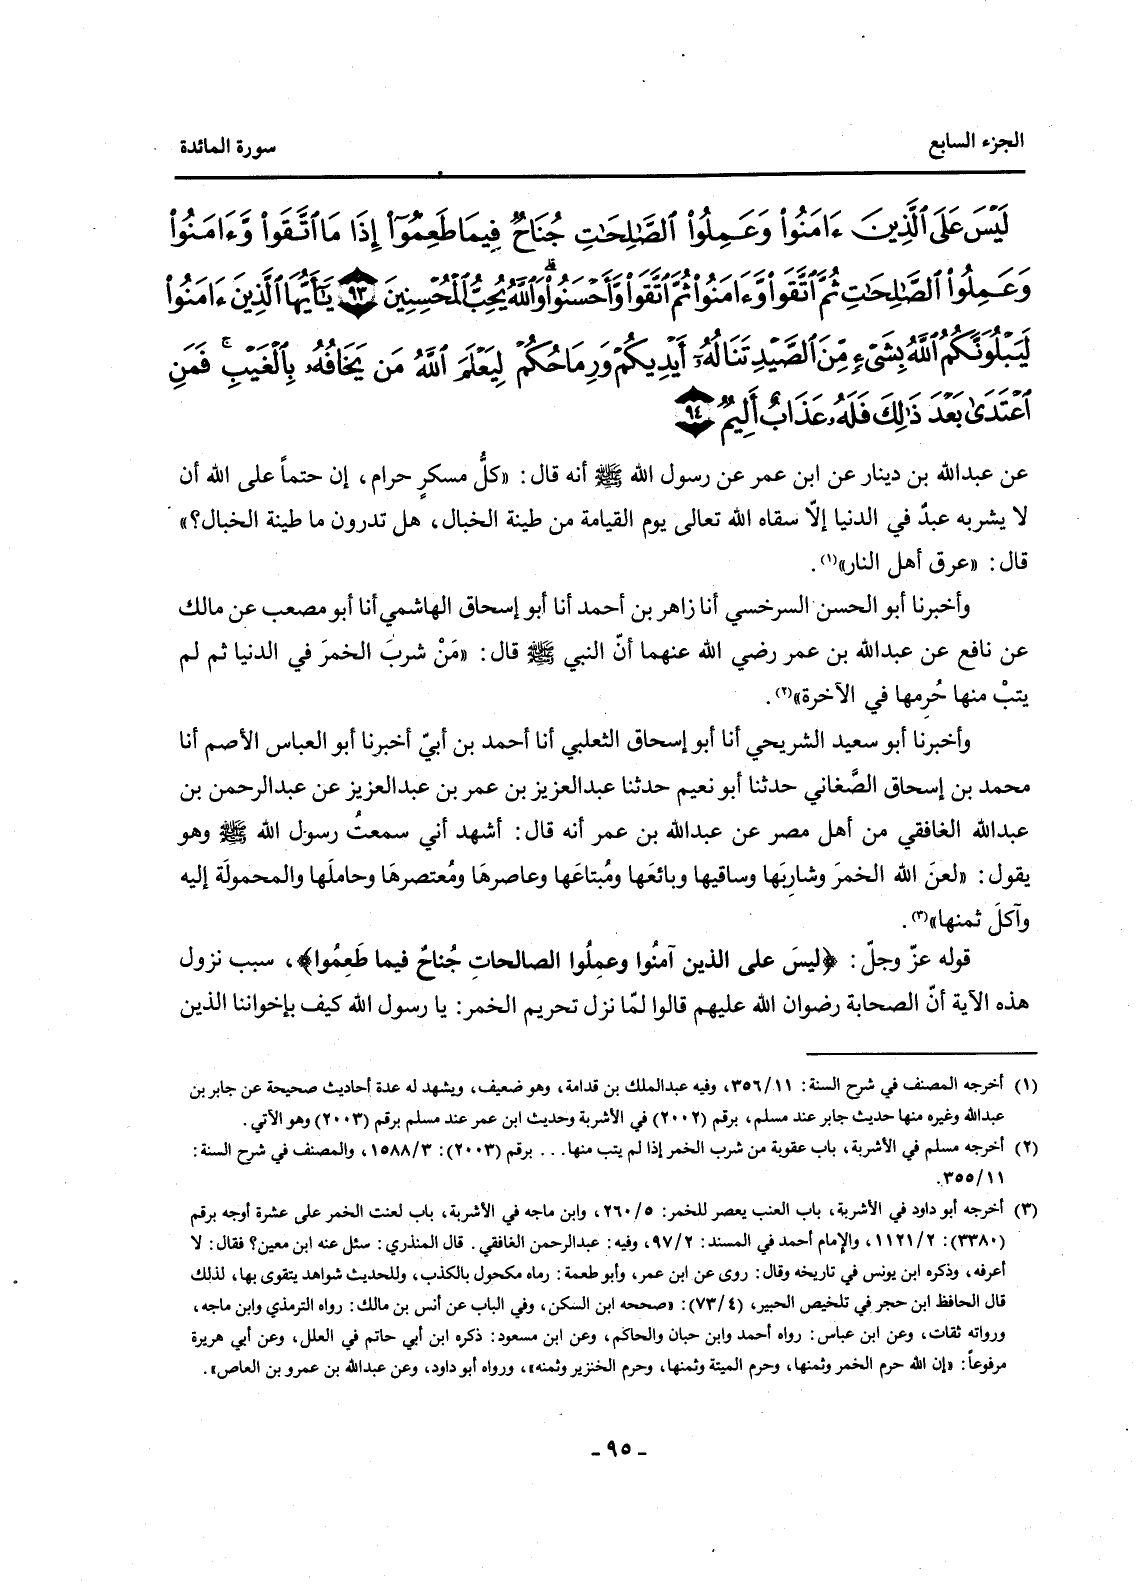 الجزء السابع
سورة المائدة
لَيْسَ عَلَى ٱلَّذِينَ ءَامَنُوا۟ وَعَمِلُوا۟ ٱلصَّـٰلِحَـٰتِ جُنَاحٌ فِيمَا طَعِمُوٓا۟ إِذَا مَا ٱتَّقَوا۟ وَّءَامَنُوا۟
وَعَمِلُوا۟ ٱلصَّـٰلِحَـٰتِ ثُمَّ ٱتَّقَوا۟ وَّءَامَنُوا۟ ثُمَّ ٱتَّقَوا۟ وَّأَحْسَنُوا۟ ۗ وَٱللَّهُ يُحِبُّ ٱلْمُحْسِنِينَ ٩٣ يَـٰٓأَيُّهَا ٱلَّذِينَ ءَامَنُوا۟
لَيَبْلُوَنَّكُمُ ٱللَّهُ بِشَىْءٍ مِّنَ ٱلصَّيْدِ تَنَالُهُۥٓ أَيْدِيكُمْ وَرِمَاحُكُمْ لِيَعْلَمَ ٱللَّهُ مَن يَخَافُهُۥ بِٱلْغَيْبِ ۚ فَمَنِ
ٱعْتَدَىٰ بَعْدَ ذَٰلِكَ فَلَهُۥ عَذَابٌ أَلِيمٌ ٩٤
عن عبدالله بن دينار عن ابن عمر عن رسول الله ﷺ أنه قال: «كلُّ مسكرٍ حرام، إن حتماً على الله أن
لا يشربه عبدٌ في الدنيا إلّا سقاه الله تعالى يوم القيامة من طينة الخبال، هل تدرون ما طينة الخبال؟»
قال: «عرق أهل النار»(١).
وأخبرنا أبو الحسن السرخسي أنا زاهر بن أحمد أنا أبو إسحاق الهاشمي أنا أبو مصعب عن مالك
عن نافع عن عبدالله بن عمر رضي الله عنهما أنّ النبي ﷺ قال: «مَنْ شربَ الخمرَ في الدنيا ثم لم
يتبْ منها حُرِمها في الآخرة»(٢).
وأخبرنا أبو سعيد الشريحي أنا أبو إسحاق الثعلبي أنا أحمد بن أبيّ أخبرنا أبو العباس الأصم أنا
محمد بن إسحاق الصَّغاني حدثنا أبو نعيم حدثنا عبدالعزيز بن عمر بن عبدالعزيز عن عبدالرحمن بن
عبدالله الغافقي من أهل مصر عن عبدالله بن عمر أنه قال: أشهد أني سمعتُ رسول الله ﷺ وهو
يقول: «لعنَ الله الخمرَ وشارِبَها وساقيها وبائعَها ومُبتاعَها وعاصرهَا ومُعتصرهَا وحاملَها والمحمولَة إليه
وآكلَ ثمنها»(٣).
قوله عزّ وجلّ: ﴿ليسَ على الذين آمنُوا وعمِلُوا الصالحاتِ جُناحٌ فيما طَعِمُوا﴾، سبب نزول
هذه الآية أنّ الصحابة رضوان الله عليهم قالوا لمّا نزل تحريم الخمر: يا رسول الله كيف بإخواننا الذين
(١) أخرجه المصنف في شرح السنة: ٣٥٦/١١، وفيه عبدالملك بن قدامة، وهو ضعيف، ويشهد له عدة أحاديث صحيحة عن جابر بن
عبدالله وغيره منها حديث جابر عند مسلم، برقم (٢٠٠٢) في الأشربة وحديث ابن عمر عند مسلم برقم (٢٠٠٣) وهو الآتي.
(٢) أخرجه مسلم في الأشربة، باب عقوبة من شرب الخمر إذا لم يتب منها... برقم (٢٠٠٣): ١٥٨٨/٣، والمصنف في شرح السنة:
٣٥٥/١١.
(٣) أخرجه أبو داود في الأشربة، باب العنب يعصر للخمر: ٢٦٠/٥، وابن ماجه في الأشربة، باب لعنت الخمر على عشرة أوجه برقم
(٣٣٨٠): ١١٢١/٢، والإمام أحمد في المسند: ٩٧/٢، وفيه: عبدالرحمن الغافقي. قال المنذري: سئل عنه ابن معين؟ فقال: لا
أعرفه، وذكره ابن يونس في تاريخه وقال: روى عن ابن عمر، وأبو طعمة: رماه مكحول بالكذب، وللحديث شواهد يتقوى بها، لذلك
قال الحافظ ابن حجر في تلخيص الحبير، (٧٣/٤): «صححه ابن السكن، وفي الباب عن أنس بن مالك: رواه الترمذي وابن ماجه،
ورواته ثقات، وعن ابن عباس: رواه أحمد وابن حبان والحاكم، وعن ابن مسعود: ذكره ابن أبي حاتم في العلل، وعن أبي هريرة
مرفوعاً: «إن الله حرم الخمر وثمنها، وحرم الميتة وثمنها، وحرم الخنزير وثمنه»، ورواه أبو داود، وعن عبدالله بن عمرو بن العاص».
ـ ٩٥ ـ